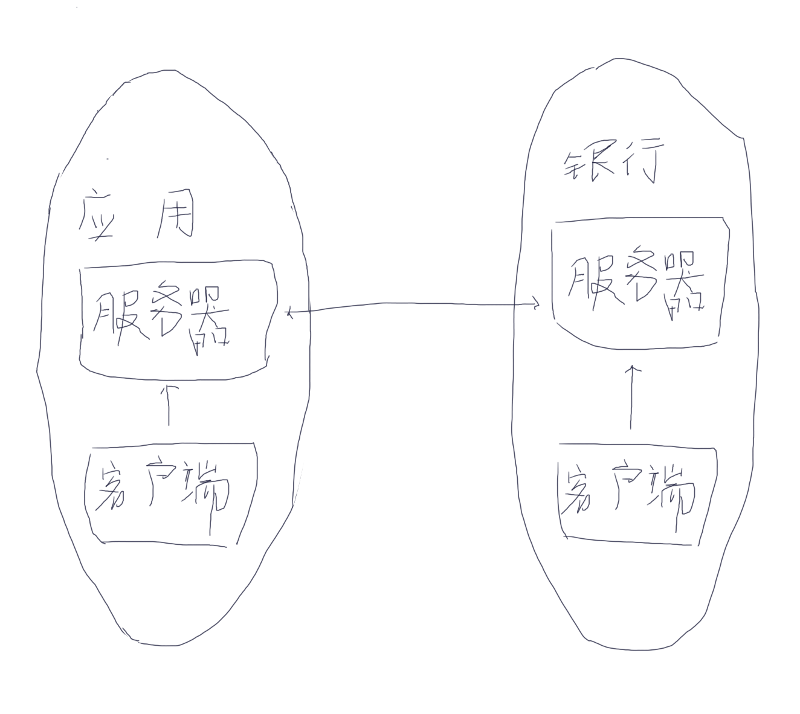 应用
服务器
客户端
银行
服务器
客户端